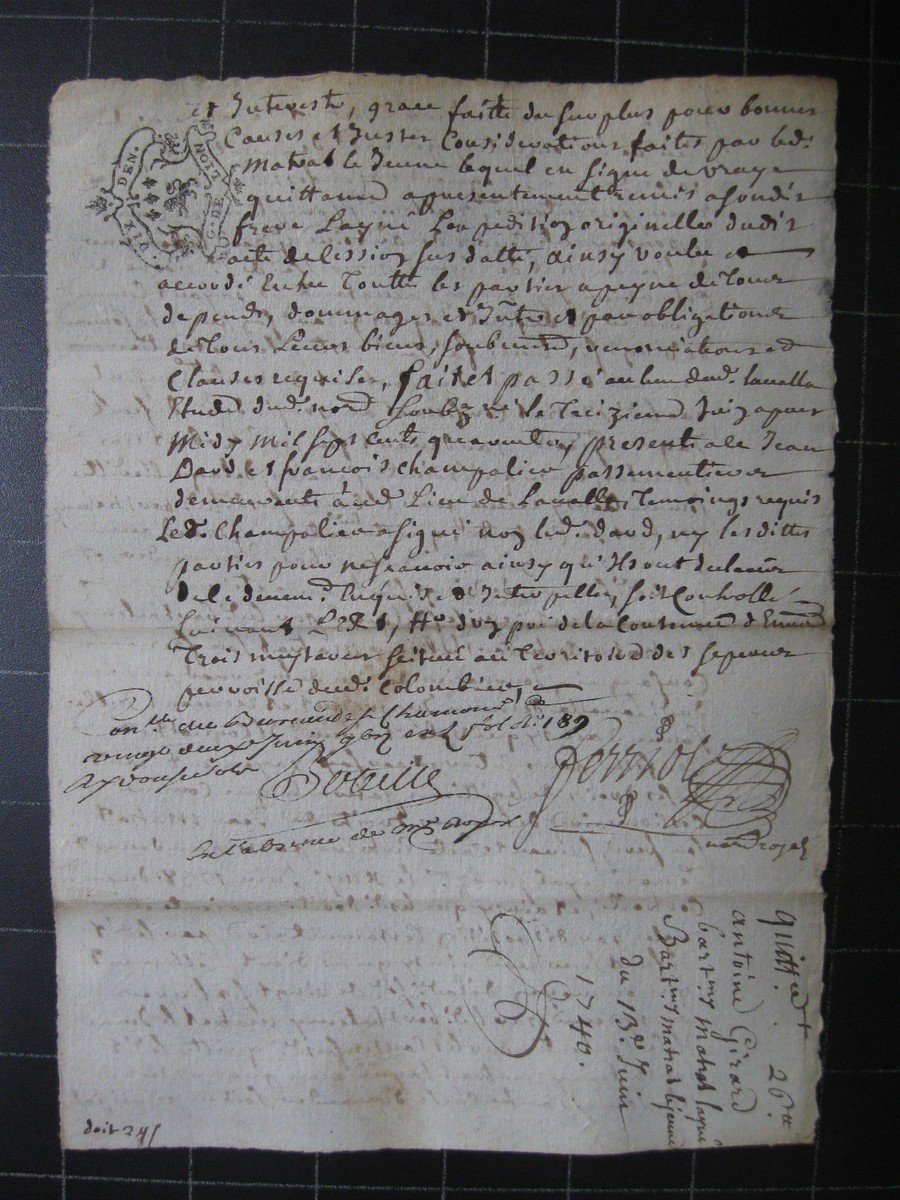 et Interests, grace faitte du surplus pour bonnes
Causes et Justes Considerations faites par led.
Matrat le Jeune lequel en signe de vraye
quittance a presentement remis a sondit
frere Layné Lexpedition originelle dudit
acte de Cession sus datté, ainsy voulu et
accordé Entre Toutte les parties a peyne de Tous
depends, dommages et Inths et par obligations
de Tous Leurs biens, soubmions, renonciations et
Clauses requises, fait et passé au lieu dud. lavalla
Etude dud. no.re soubz.né le Treizieme Juin apres
Midy mil sept Cents quarente, presents a ce Jean
Dard et francois Champalier passementiers
demeurants audt. Lieu de Lavalla, Temoings requis
Led. Champalier a signé non led. dard, ny les dittes
parties pour ne scavoir ainsy qu'Ils ont declarer
de ce deuem.t Enquis et Interpellés, soit Controllé
suivant L'Edit,
Trois mestaires scitué au Territoire des
perroisse dud. Colombier,
Con.llé au Bureau de St Chamond
vingt deuxe Juin 1740 f.o 189
Boteille
En l'absence de
Perriol
no.re royal
DIX DEN.
G. DE LION
quitt. 26.tt
antoine Girard
bart.my matrat layné
Bart.my matrat le jeune
du 13.e Juin
1740.
doit 24 s